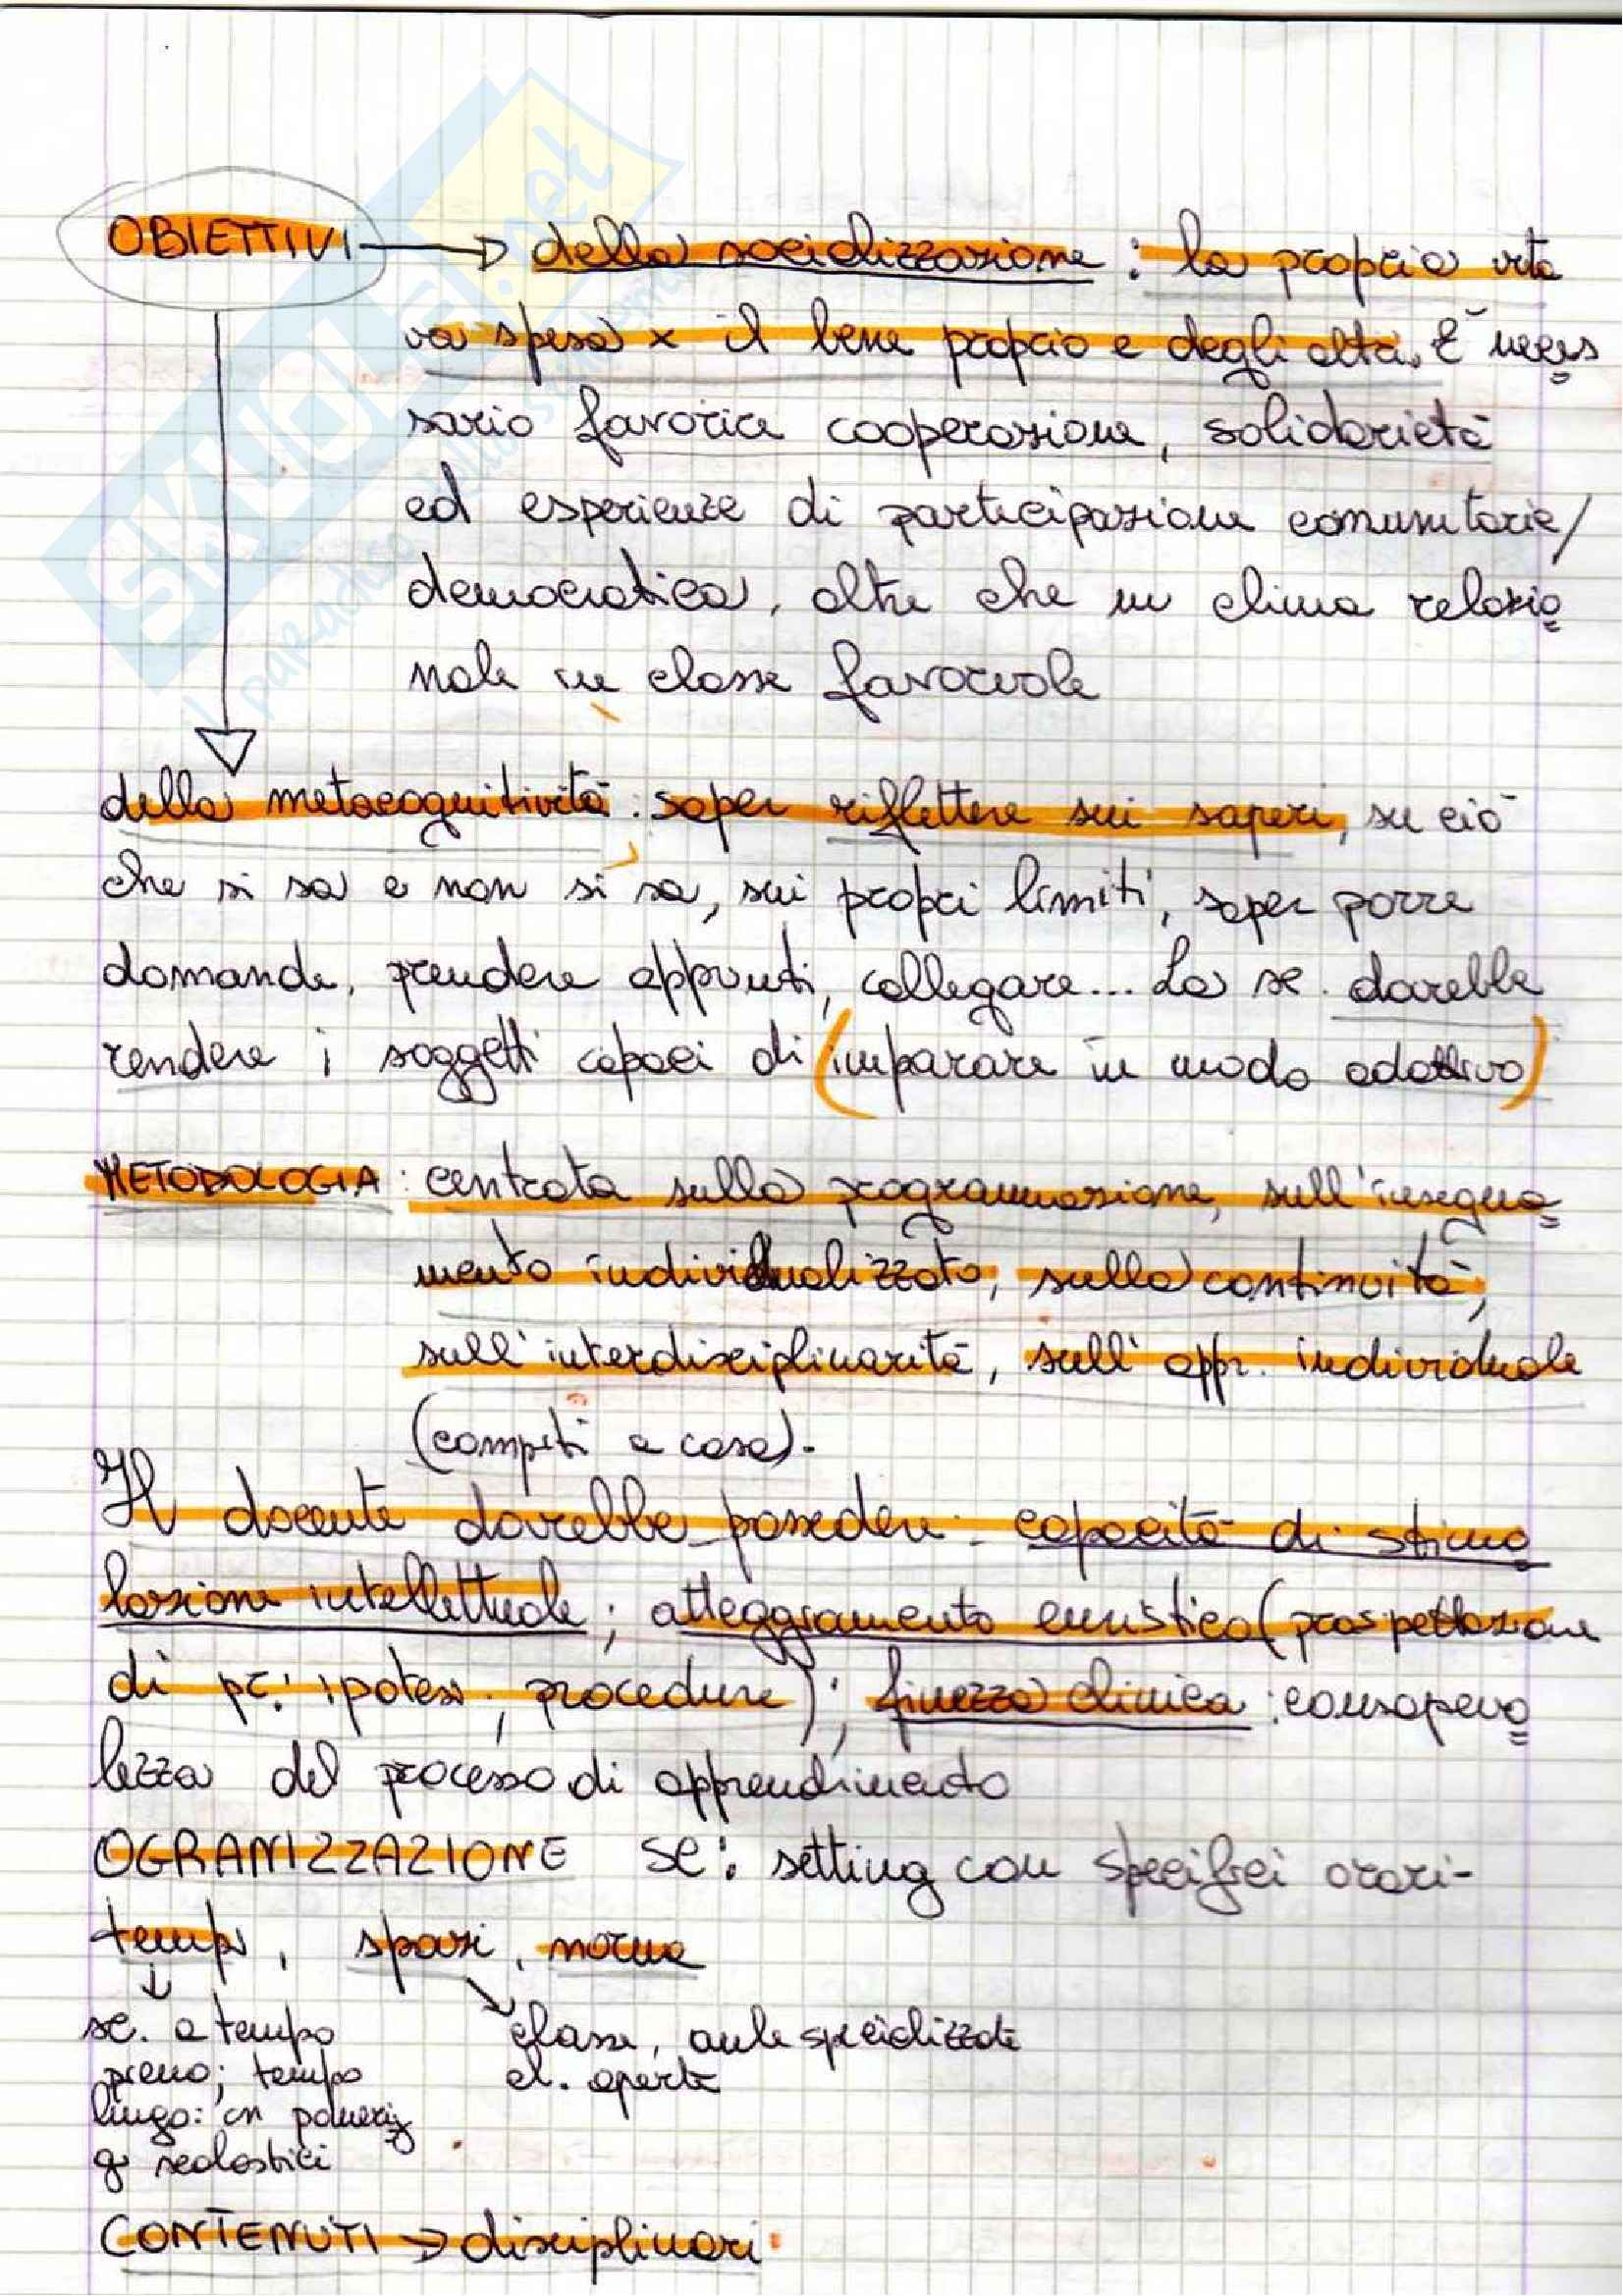 OBIETTIVI → della socializzazione : la propria vita
va spesa x il bene proprio e degli altri. È neces
sario favorire cooperazione, solidarietà
ed esperienze di partecipazione comunitaria/
democratica, oltre che un clima relazio
nale in classe favorevole
della metacognitività : saper riflettere sui saperi, su ciò
che si sa e non si sa, sui propri limiti, saper porre
domande, prendere appunti, collegare... La sc. dovrebbe
rendere i soggetti capaci di (imparare in modo adattivo)
METODOLOGIA : centrata sulla programmazione, sull'insegna
mento individualizzato, sulla continuità,
sull'interdisciplinarità, sull'appr. individuale
(compiti a casa).
Il docente dovrebbe possedere: capacità di stimo
lazione intellettuale; atteggiamento euristico (prospettazione
di pr.: ipotesi, procedure); finezza clinica : consapevo
lezza del processo di apprendimento
OGRANIZZAZIONE sc: setting con specifici orari-
tempi, spazi, norme
sc. a tempo
pieno; tempo
lungo: in pomerig
gi scolastici
classe, aule specializzate
cl. aperte
CONTENUTI → disciplinari
SKUOLA.net
il paradiso dello studente